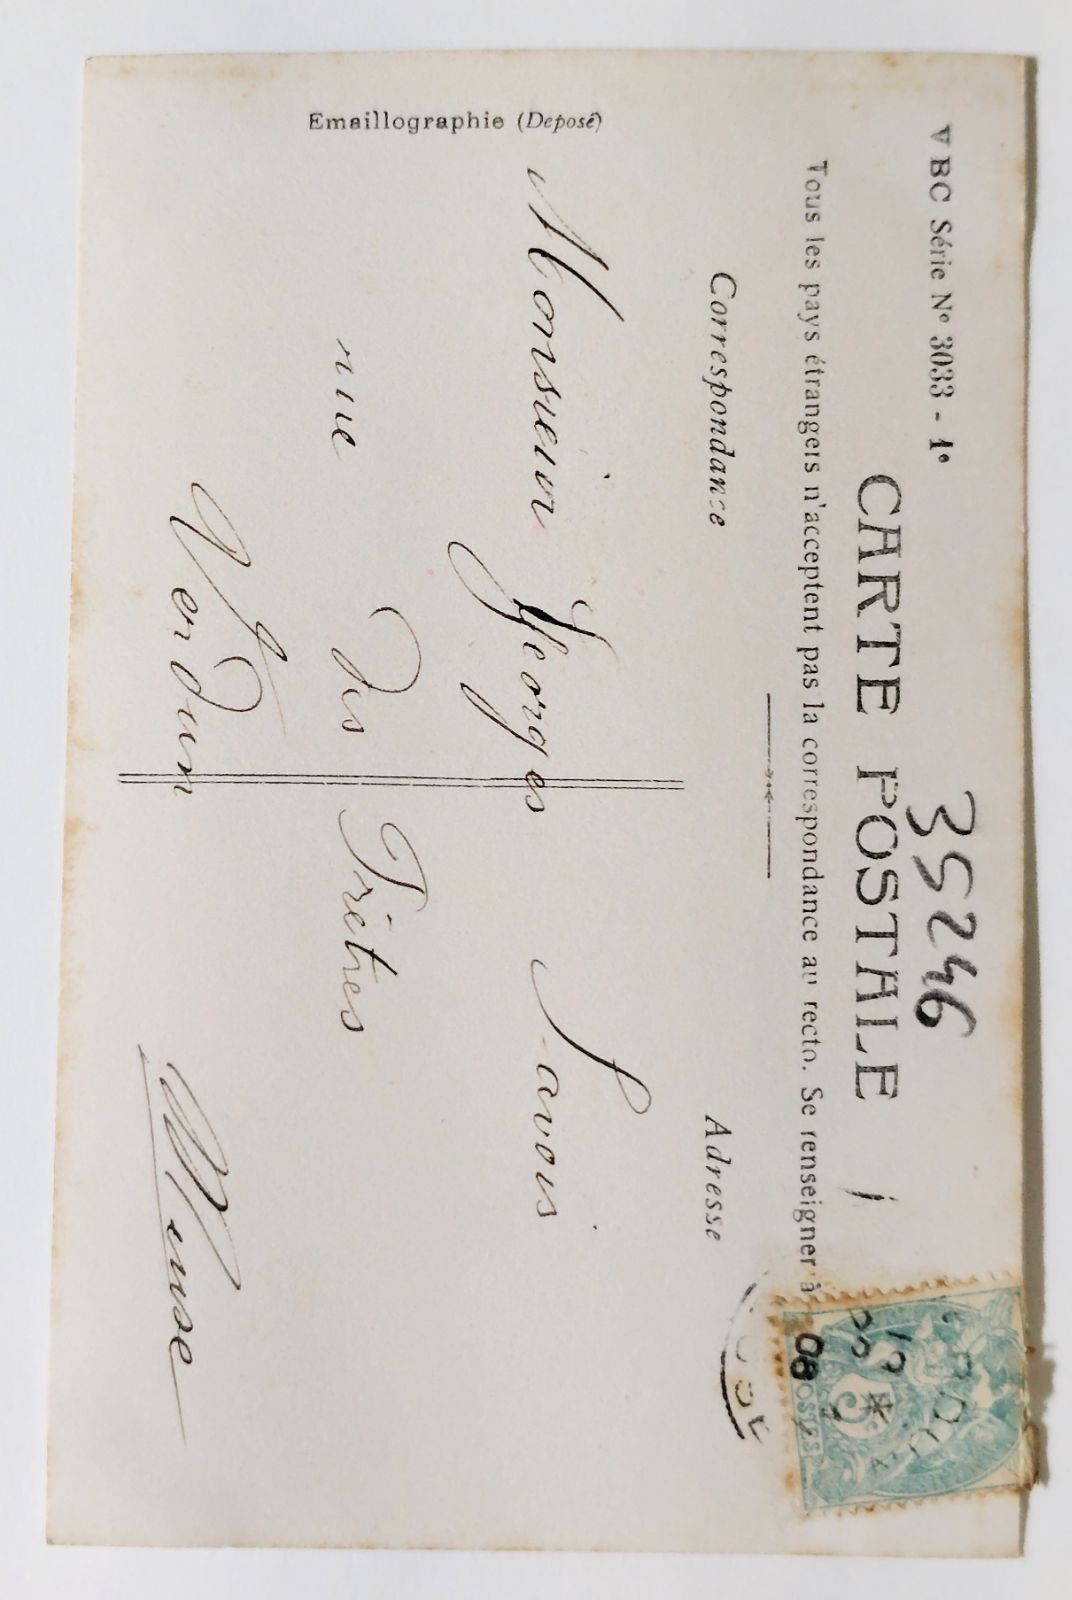 VBC Série N° 3033 - 1°
35246
CARTE POSTALE
Tous les pays étrangers n'acceptent pas la correspondance au recto. Se renseigner à
Correspondance
Adresse
Monsieur Georges Savois
rue des Prêtres
Verdun
Meuse
Emaillographie (Deposé)
5
POSTES
08